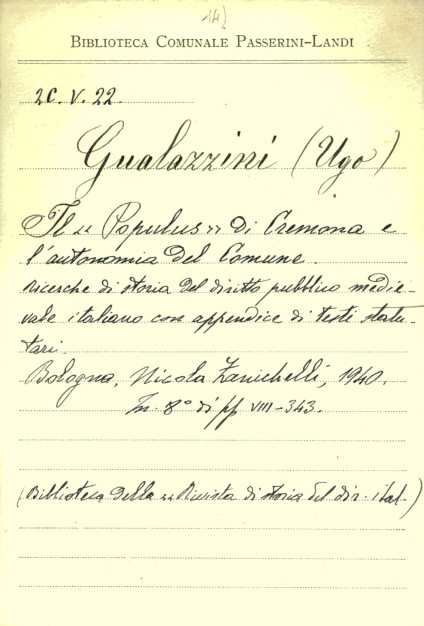 143
BIBLIOTECA COMUNALE PASSERINI-LANDI
2C. V. 22.
Gualazzini (Ugo)
Il «Populus» di Cremona e
l'autonomia del Comune.
Ricerche di storia del diritto pubblico medie-
vale italiano con appendice di testi statu-
tari.
Bologna, Nicola Zanichelli, 1940.
In-8° di pp. VIII-343.
(Biblioteca della «Rivista di storia del dir. ital.)